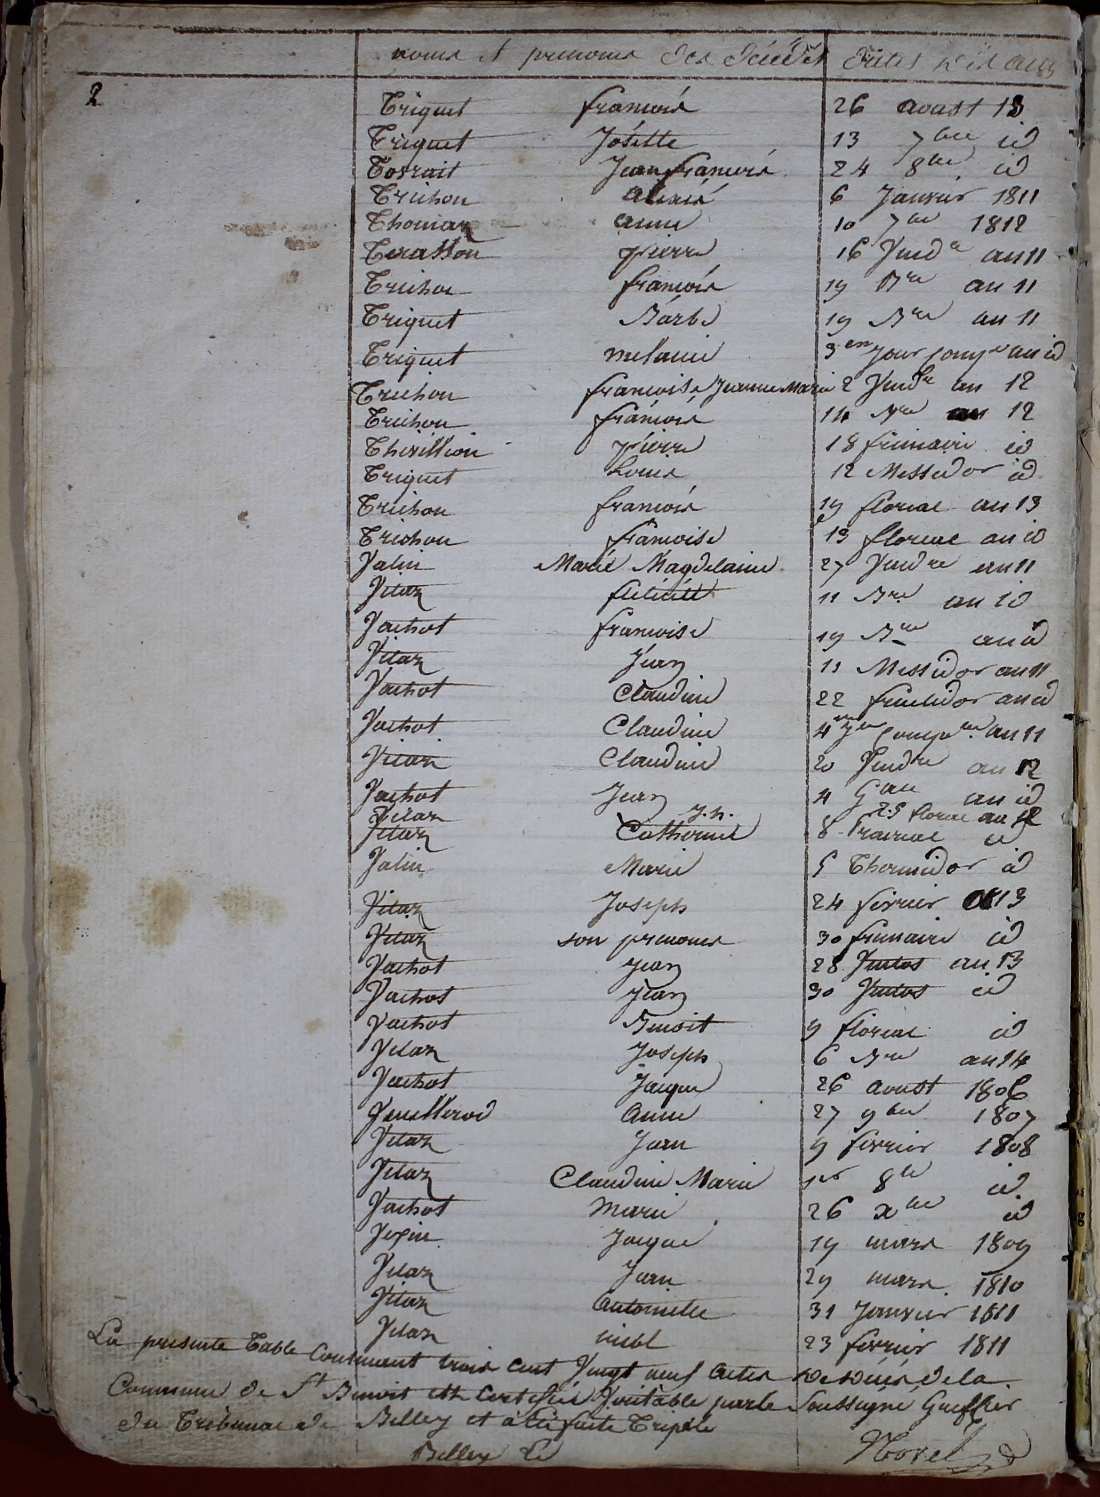 noms et prenoms des décédés dates des actes
2
Triquet francois 26 aoust 18
Triquet Josette 13 7bre id
Tossait Jean francois 24 8bre id
Trichon alexis 6 Janvier 1811
Thomaz anne 10 7bre 1812
Terasson pierre 16 Vendre an 11
Trichon francois 19 Bre an 11
Triquet Barbe 19 Bre an 11
Triquet melanie 3em Jour compre an id
Trichon francoise Jeanne Marie 2 Vendre an 12
Trichon francois 14 Bre an 12
Thevillion pierre 18 frimaire id
Triquet Louis 12 Messidor id
Trichon francois 19 floreal an 13
Trichon francoise 13 floreal an id
Valin Marie Magdelaine 27 Vendre an 11
Vitaz felicité 11 Bre an id
Vachot francoise 19 Bre an id
Vitaz Jean 11 Messidor an 11
Vachot Claudine 22 fructidor an id
Vachot Claudine 4me Jour compre an 11
Vitaz Claudine 20 Vendre an 12
Vachot Jean 4 an id
Vitaz J.h. 25 floreal an 12
Vitaz Catherine 8 Prairial id
Valin Marie 5 Thermidor id
Vitaz Joseph 24 fevrier 13
Vitaz son prenoms 30 frimaire id
Vachot Jean 28 Ventos an 13
Vachot Jean 30 Ventos id
Vachot Benoit 9 floreal id
Vitaz Joseph 6 Bre an 14
Vachot Jacque 26 aoust 1806
Veuillerod anne 27 9bre 1807
Vitaz Jean 9 fevrier 1808
Vitaz Claudine Marie 1er 8bre id
Vachot Marie 26 xbre id
Vepin Jacque 19 mars 1809
Vitaz Jean 29 mars 1810
Vitaz Antoinette 31 Janvier 1811
Vitaz 23 fevrier 1811
La presente Table Contenant trois cent Vingt neuf actes de décès de la
Commune de St Benoit est Certifiée Véritable par le Soussigné Greffier
du Tribunal de Belley et a été faite Triple
Belley Le